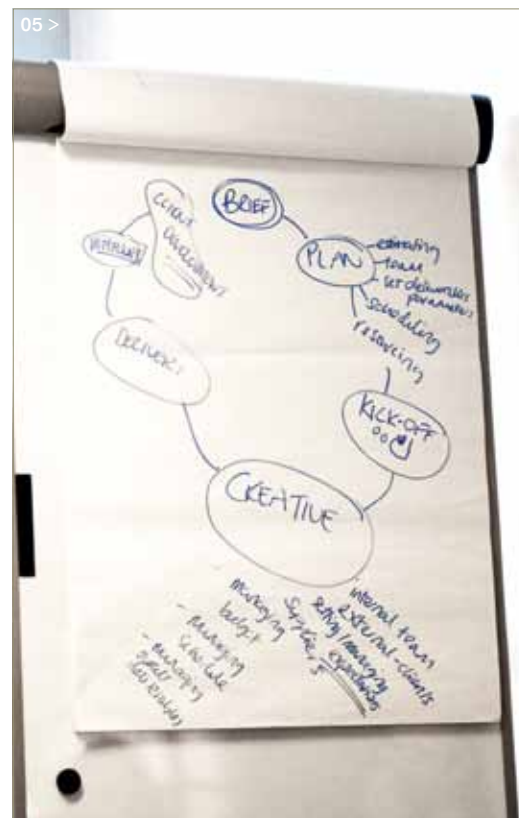 05 >
BRIEF
PLAN
- team
- set deliverables
parameters
scheduling
resourcing
KICK-OFF
CREATIVE
internal team
external - clients
setting/managing
expectations
suppliers
managing
budget
- managing
schedule
- managing
DELIVERY
CLIENT
DEVELOPMENT